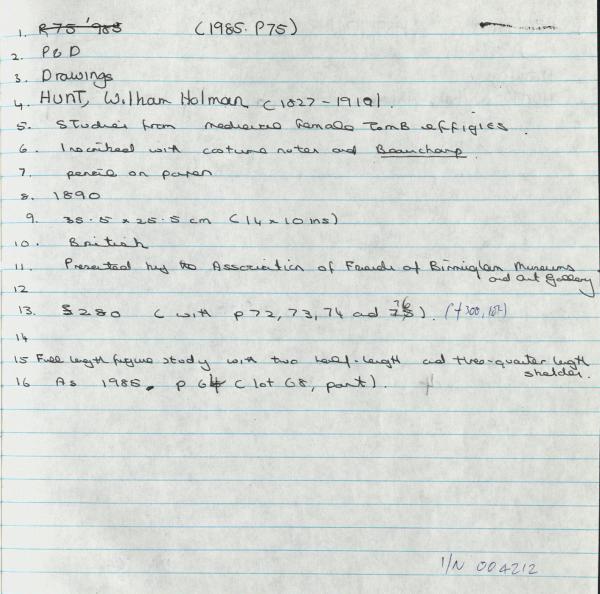 1. P75'985 (1985.P75)
2. P&D
3. Drawings
4. HUNT, William Holman (1827-1910).
5. Studies from medieval female Tomb effigies.
6. Inscribed with costume notes and Beauchamp.
7. pencil on paper
8. 1890
9. 35.5 x 25.5 cm (14 x 10 ins)
10. British
11. Presented by the Association of Friends of Birmingham Museums and Art Gallery
12
13. £280 (with p72, 73, 74 and 76). (+300, 10%)
14
15 Full length figure study with two half-length and three-quarter length sketches.
16 As 1985. p 64 (lot 68, part).
I/N 004212